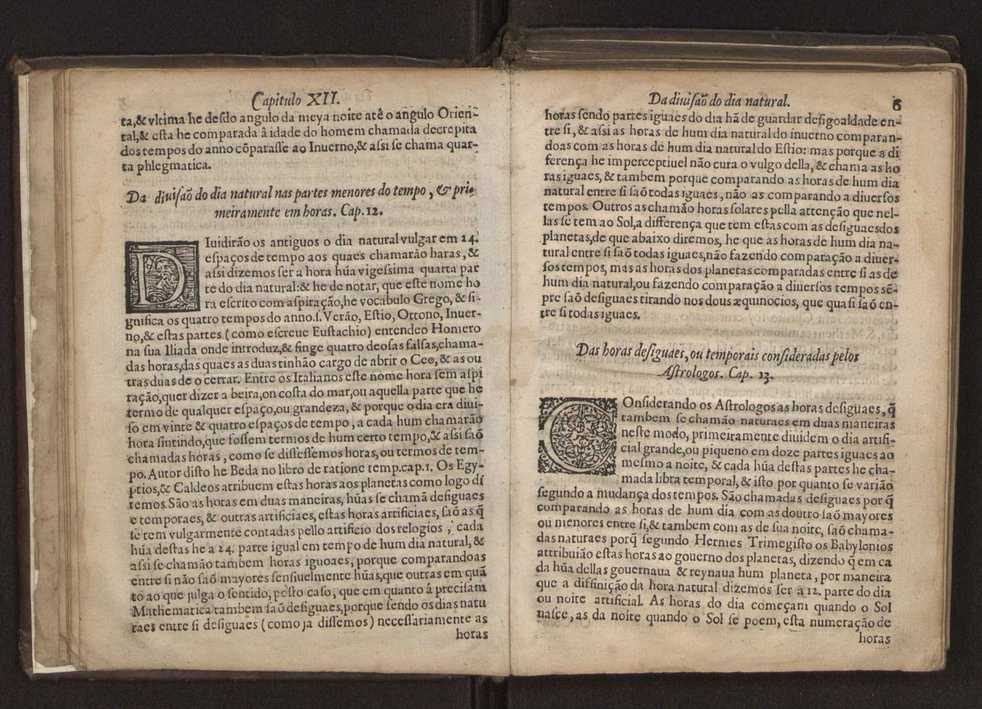 Capitulo XII.
ta,& vltima he desdo angulo da meya noite atè o angulo Orien-
tal,& esta he comparada â idade do homem chamada decrepita
dos tempos do anno cõparasse ao Inuerno,& assi se chama quar-
ta phlegmatica.
Da diuisaõ do dia natural nas partes menores do tempo, & pri-
meiramente em horas. Cap. 12.
DIuidirão os antiguos o dia natural vulgar em 24.
espaços de tempo aos quaes chamarão haras, &
assi dizemos ser a hora hũa vigessima quarta par
te do dia natural:& he de notar, que este nome ho
ra escrito com aspiração,he vocabulo Grego, & si-
gnifica os quatro tempos do anno.s. Verão, Estio, Ottono, Inuer-
no,& estas partes (como escreue Eustachio) entendeo Homero
na sua Iliada onde introduz,& finge quatro deosas falsas,chama-
das horas,das quaes as duas tinhão cargo de abrir o Ceo, & as ou
tras duas de o cerrar. Entre os Italianos este nome hora sem aspi
ração,quer dizer a beira,ou costa do mar,ou aquella parte que he
termo de qualquer espaço,ou grandeza, & porque o dia era diui-
so em vinte & quatro espaços de tempo, a cada hum chamarão
hora sintindo,que fossem termos de hum certo tempo,& assi saõ
chamadas horas, como se dissessemos horas, ou termos de tem-
po. Autor disto he Beda no libro de ratione temp.cap.1. Os Egy-
ptios,& Caldeos atribuem estas horas aos planetas como logo di
remos. São as horas em duas maneiras, hũas se chamã desiguaes
e temporaes, & outras artificiaes, estas horas artificiaes, saõ as q̃
se tem vulgarmente contadas pello artificio dos relogios, cada
hũa destas he a 24. parte igual em tempo de hum dia natural, &
assi se chamão tambem horas iguoaes, porque comparandoas
entre si não saõ mayores sensiuelmente hũas,que outras em quã
to ao que julga o sentido, posto caso, que em quanto â precisam
Mathematica tambem saõ desiguaes,porque sendo os dias natu
raes entre si desiguaes (como ja dissemos) necessariamente as
horas
Da diuisaõ do dia natural. 6
horas sendo partes iguaes do dia hã de guardar desigoaldade en-
tre si, & assi as horas de hum dia natural do inuerno comparan-
doas com as horas de hum dia natural do Estio: mas porque a di
ferença he imperceptiuel não cura o vulgo della, & chama as ho
ras iguaes, & tambem porque comparando as horas de hum dia
natural entre si saõ todas iguaes, não as comparando a diuersos
tempos. Outros as chamão horas solares pella attenção que nel-
las se tem ao Sol,a differença que tem estas com as desiguaes dos
planetas,de que abaixo diremos, he que as horas de hum dia na-
tural entre si saõ todas iguaes,não fazendo comparação a diuer-
sos tempos, mas as horas dos planetas comparadas entre si as de
hum dia natural,ou fazendo comparação a diuersos tempos sẽ-
pre saõ desiguaes tirando nos dous æquinocios, que quasi saõ en-
tre si todas iguaes.
Das horas desiguaes, ou temporais consideradas pelos
Astrologos. Cap. 13.
COnsiderando os Astrologos as horas desiguaes, q̃
tambem se chamão naturaes em duas maneiras
neste modo, primeiramente diuidem o dia artifi-
cial grande,ou piqueno em doze partes iguaes ao
mesmo a noite, & cada hũa destas partes he cha-
mada libra temporal, & isto por quanto se varião
segundo a mudança dos tempos. São chamadas desiguaes por q̃
comparando as horas de hum dia com as doutro saõ mayores
ou menores entre si,& tambem com as de sua noite, saõ chama-
das naturaes porq̃ segundo Hermes Trimegisto os Babylonios
attribuião estas horas ao governo dos planetas, dizendo q̃ em ca
da hũa dellas gouernaua & reynaua hum planeta, por maneira
que a diffinição da hora natural dizemos ser a 12. parte do dia
ou noite artificial. As horas do dia começam quando o Sol
nasce, as da noite quando o Sol se poem, esta numeração de
horas